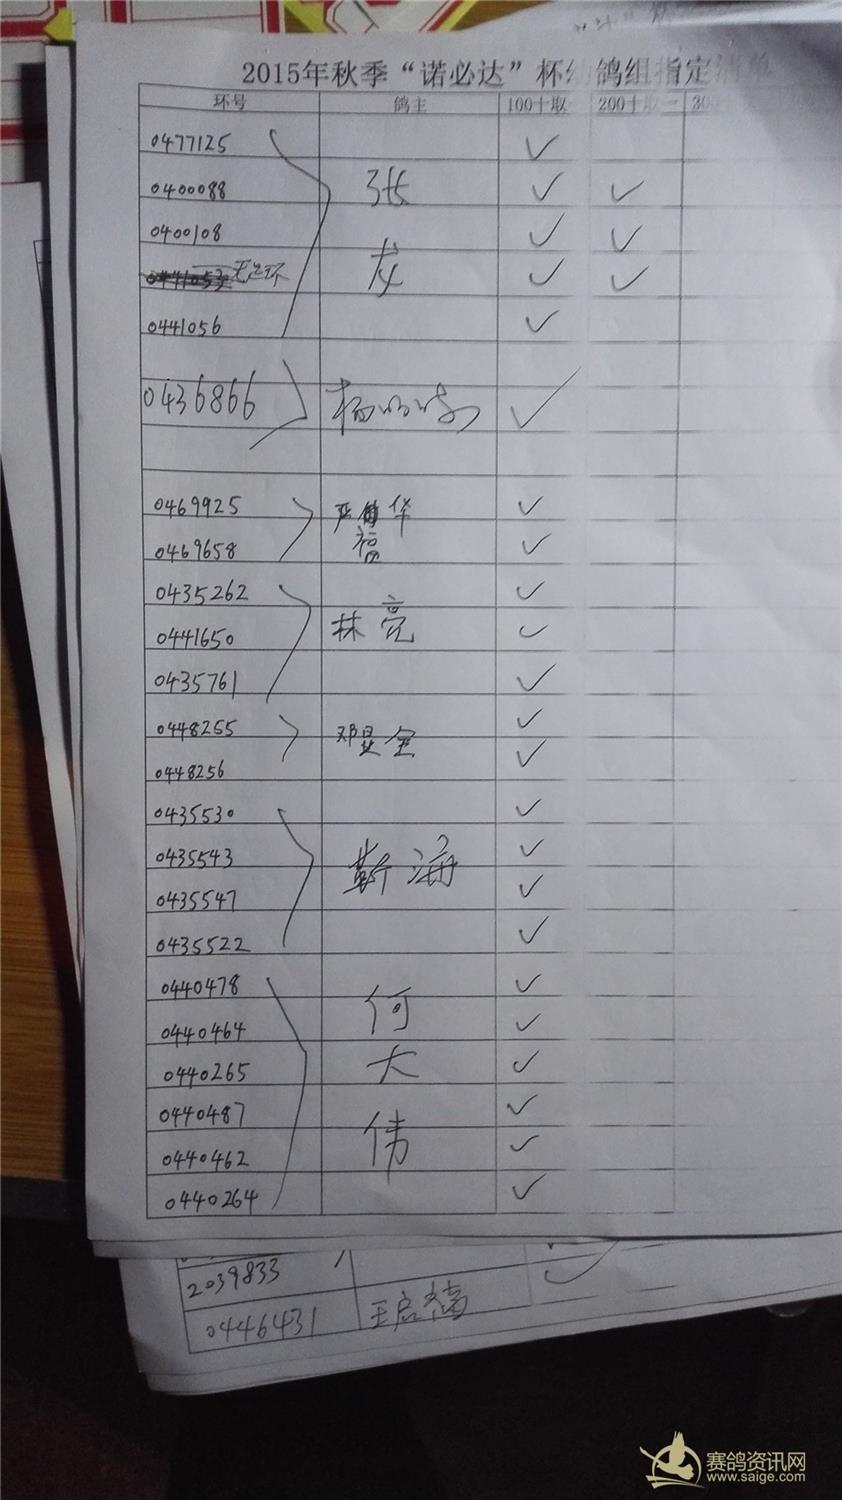 2015年秋季“诺必达”杯幼鸽组指定清单
环号 鸽主 100十取一 200十取一 300
0477125 ✓
0400088 张 ✓ ✓
0400108 ✓ ✓
0441053 无足环 龙 ✓ ✓
0441056 ✓
0436866 杨 ✓
0469925 严 华 ✓
0469658 福 ✓
0435262 ✓
0441650 林亮 ✓
0435761 ✓
0448255 邓显全 ✓
0448256 ✓
0435530 ✓
0435543 靳海 ✓
0435547 ✓
0435522 ✓
0440478 何 ✓
0440464 ✓
0440265 大 ✓
0440487 ✓
0440462 伟 ✓
0440264 ✓
2039833 ✓
0446431 王启
赛鸽资讯网
www.saige.com